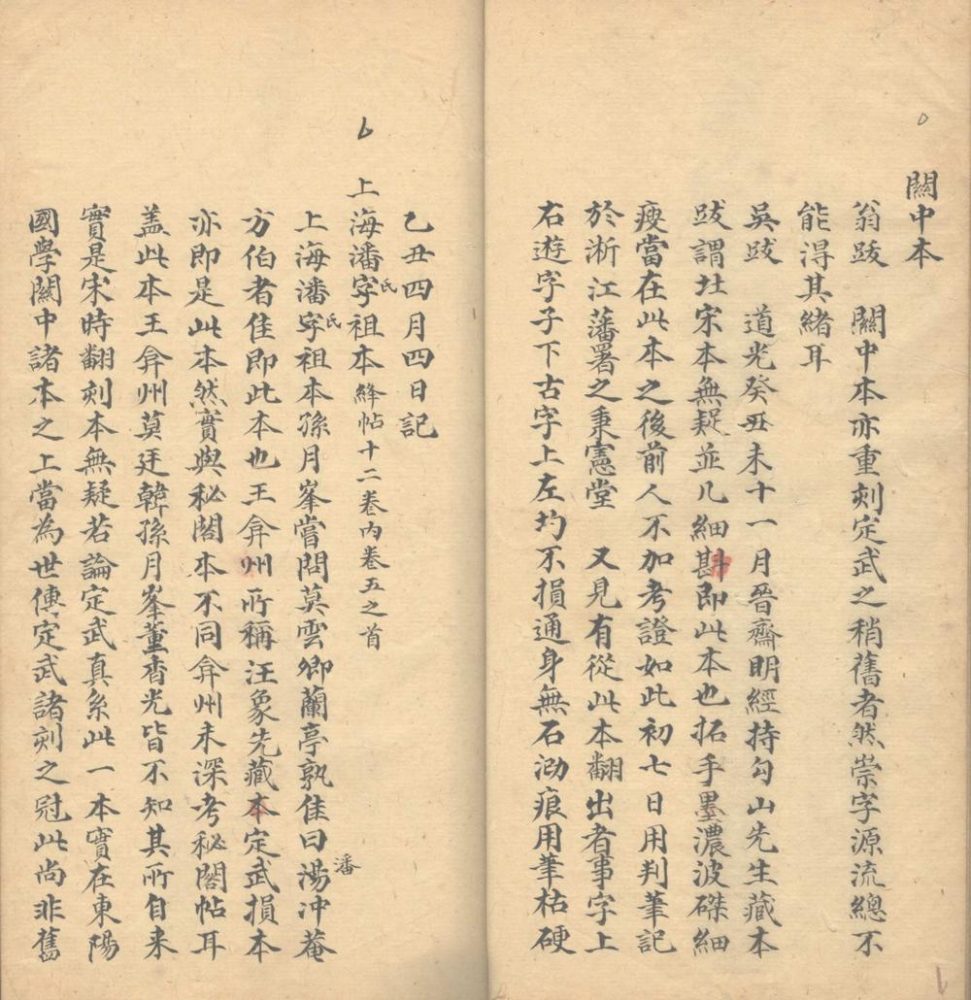 關中本
翁跋　關中本亦重刻定武之稍舊者然崇字源流總不
能得其緒耳
吳跋　道光癸丑未十一月晉齋明經持勾山先生藏本
跋謂㘴宋本無疑並几細斟即此本也拓手墨濃波磔細
瘦當在此本之後前人不加考證如此初七日用判筆記
於浙江藩署之秉憲堂　又見有從此本翻出者事字上
右遊字子下古字上左均不損通身無石泐痕用筆枯硬
乙丑四月四日記
上海潘氏字祖本絳帖十二卷內卷五之首
上海潘氏字祖本孫月峯嘗問莫雲卿蘭亭孰佳曰潘湯冲菴
方伯者佳即此本也王弇州所稱汪象先藏本定武損本
亦即是此本然實與秘閣本不同弇州未深考秘閣帖耳
蓋此本王弇州莫廷韓孫月峯董香光皆不知其所自来
實是宋時翻刻本無疑若論定武真系此一本實在東陽
國學關中諸本之上當為世傳定武諸刻之冠此尚非舊